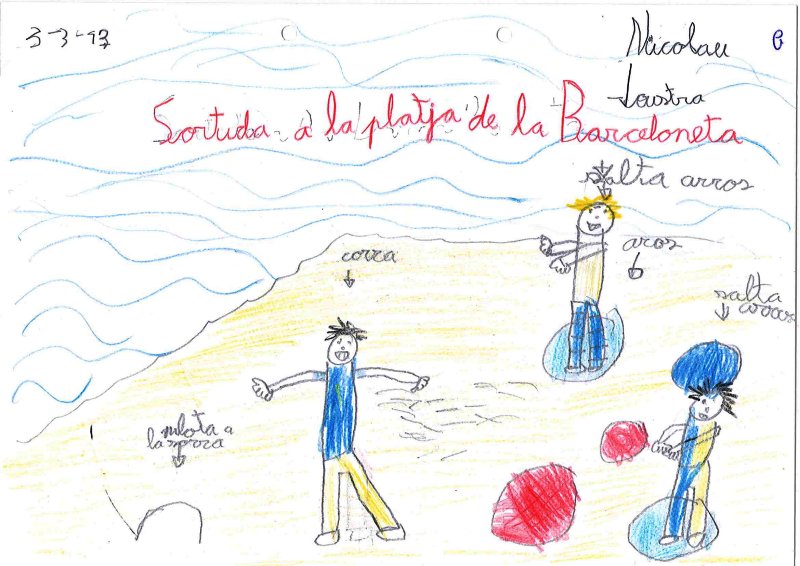 3-3-13
Nicolau
Lastra
Sortida a la platja de la Barceloneta
salta arros
corra
aros
salta
arros
a
la sorra